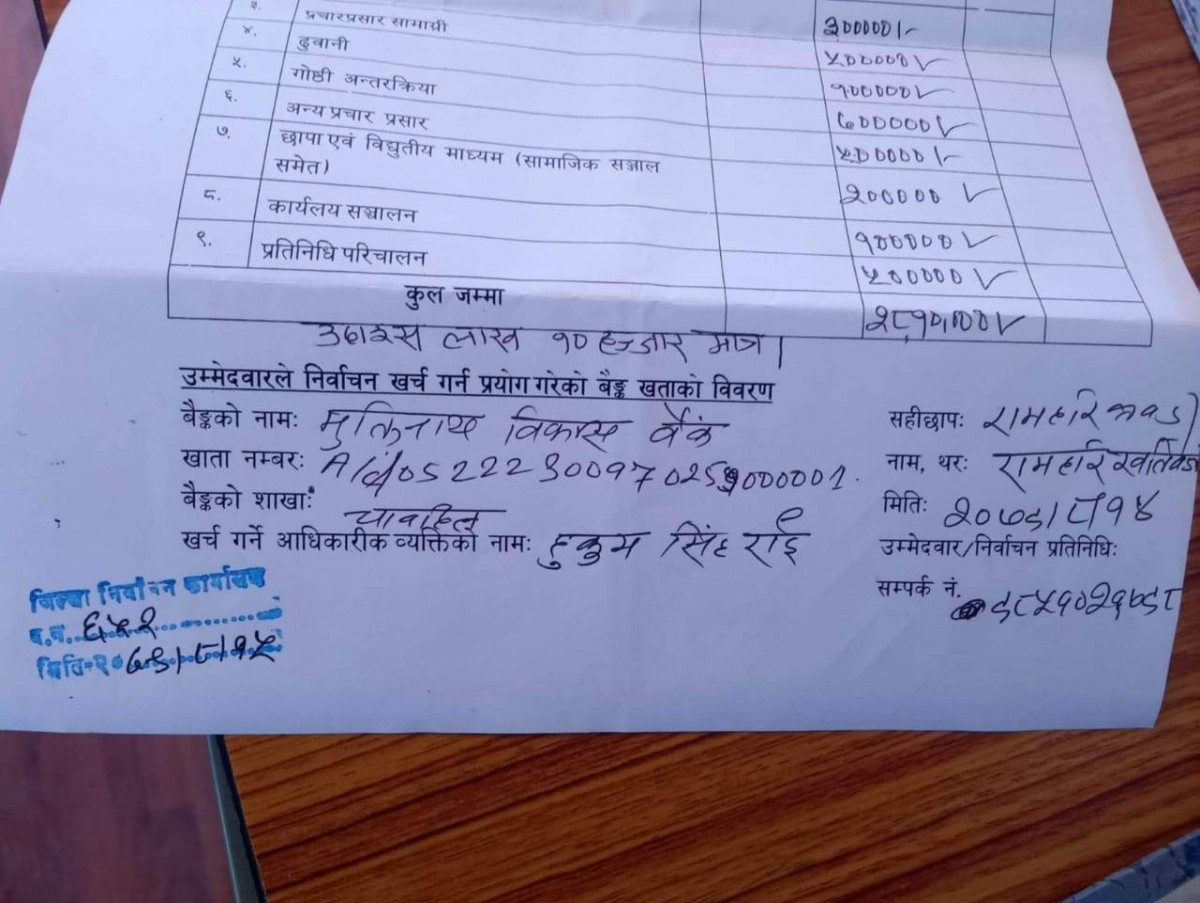 ३. प्रचारप्रसार सामाग्री ३०००००।-
४. ढुवानी ५००००।-
५. गोष्ठी अन्तरक्रिया १०००००।-
६. अन्य प्रचार प्रसार ७०००००।-
७. छापा एवं विद्युतीय माध्यम (सामाजिक सञ्जाल समेत) २००००० ।-
८. कार्यलय सञ्चालन १०००००।-
९. प्रतिनिधि परिचालन ५०००००।-
कुल जम्मा २८,१०,०००।-
अठाइस लाख १० हजार मात्र।
उम्मेदवारले निर्वाचन खर्च गर्न प्रयोग गरेको बैङ्क खताको विवरण
बैङ्कको नामः मुक्तिनाथ विकास बैंक
खाता नम्बरः
बैङ्कको शाखाः चावहिल
खर्च गर्ने आधिकारीक व्यक्तिको नामः हुकुम सिंह राई
सहीछापः रामहरि
नाम, थरः रामहरि खतिवडा
मितिः २०७९।८।१४
उम्मेदवार/निर्वाचन प्रतिनिधिः
सम्पर्क नं.
जिल्ला निर्वाचन कार्यालय
द.न. ६५२
मिति-२०७९।८।१५